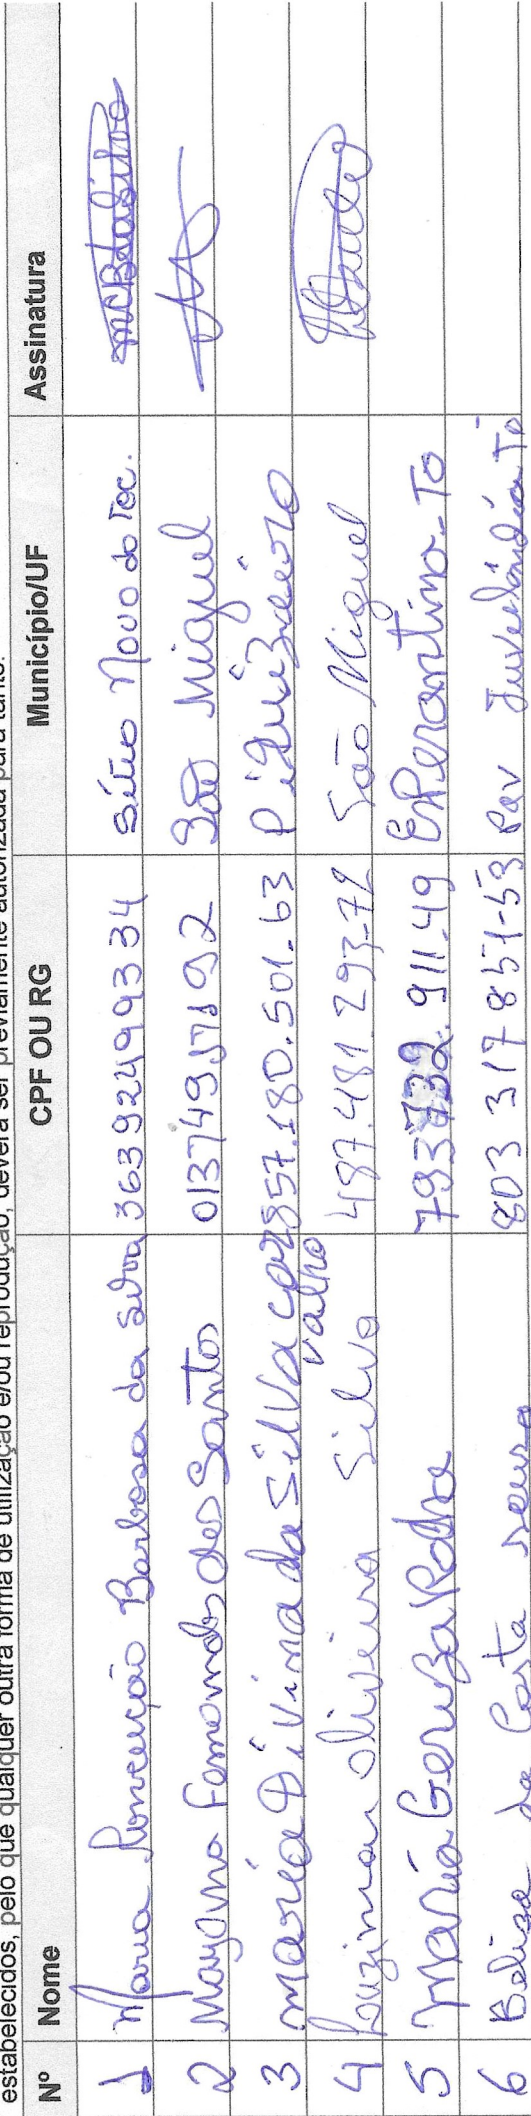 estabelecidos, pelo que qualquer outra forma de utilização e/ou reprodução, deverá ser previamente autorizada para tanto.
Nº Nome CPF OU RG Município/UF Assinatura
1 Maria Conceição Barbosa da Silva 36392499334 Sítio Novo do Toc.
2 Mayanna Fernandes dos Santos São Miguel
3 maria Divina da Silva carvalho 857.180.501.63
4 Luzimar Oliveira Silva 487.481 293-72 São Miguel
5 Maria Geruza 793732.911.49 Esperantina-To
6 da Costa 803 317 851-53 Pov Juverlândia To